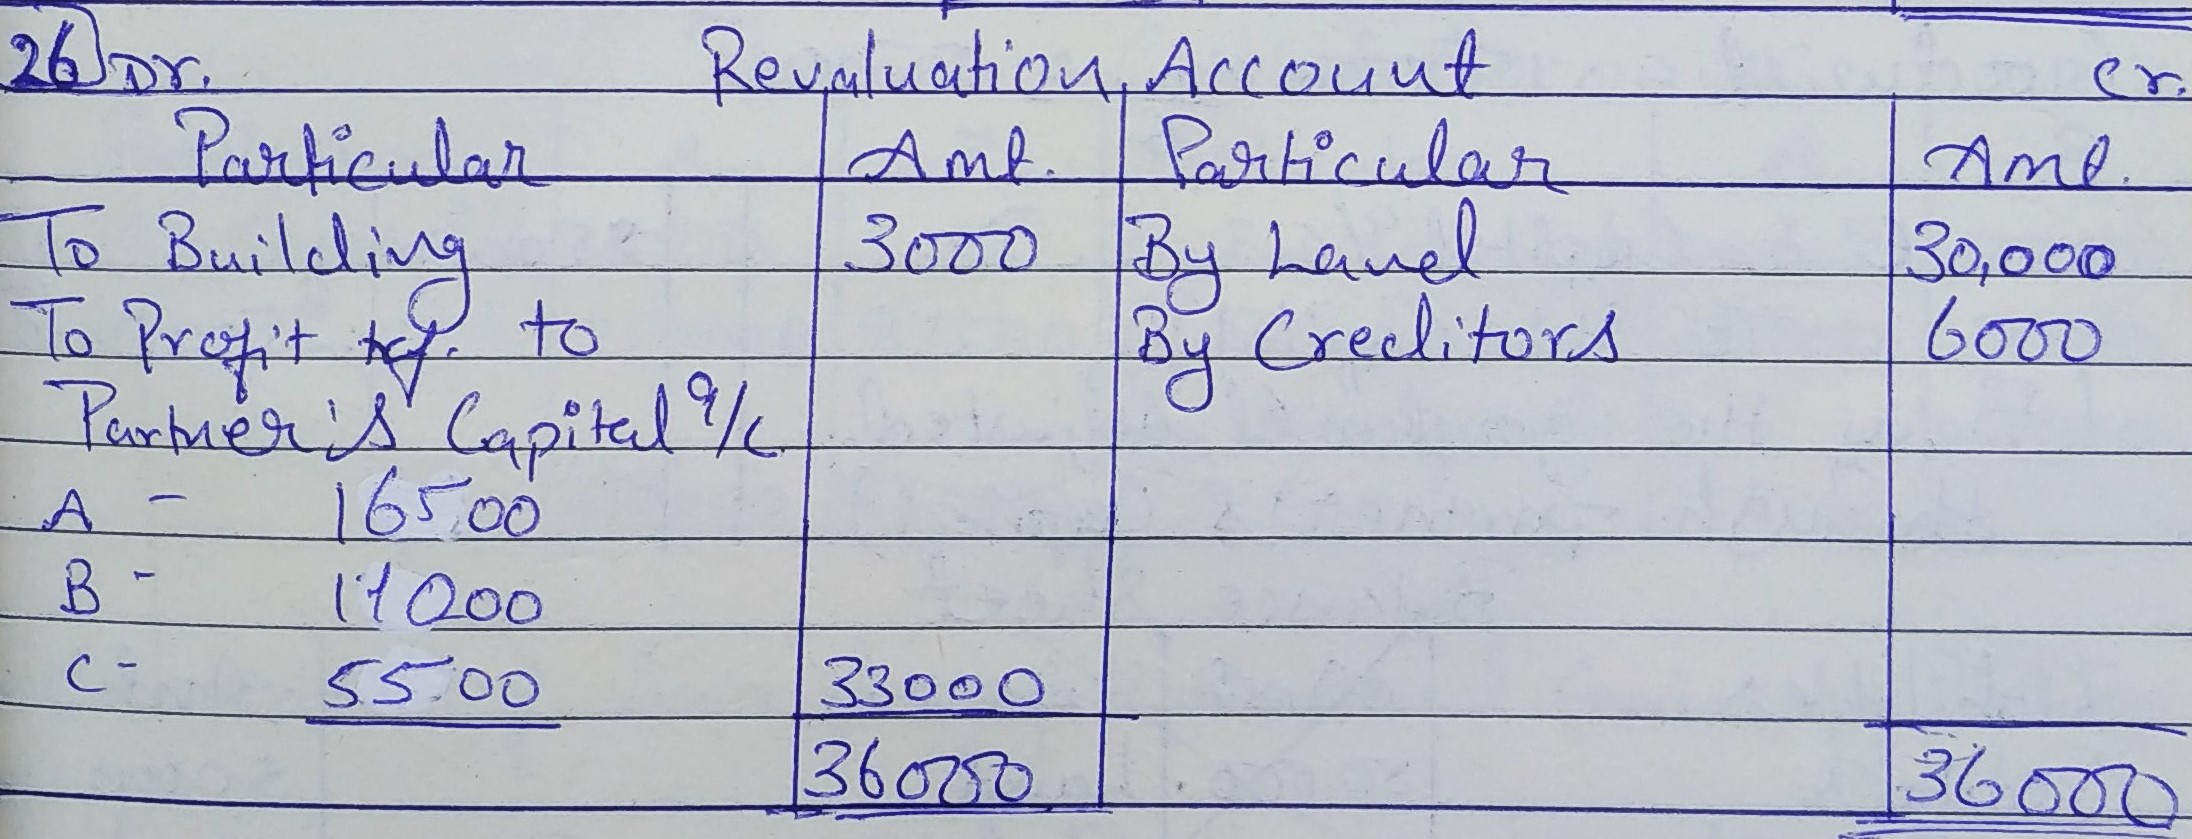 26 Dr. Revaluation Account Cr.
Particular Amt. Particular Amt.
To Building 3000 By Land 30,000
To Profit trf. to By Creditors 6000
Partner's Capital a/c
A - 16500
B - 11000
C - 5500 33000
36000 36000